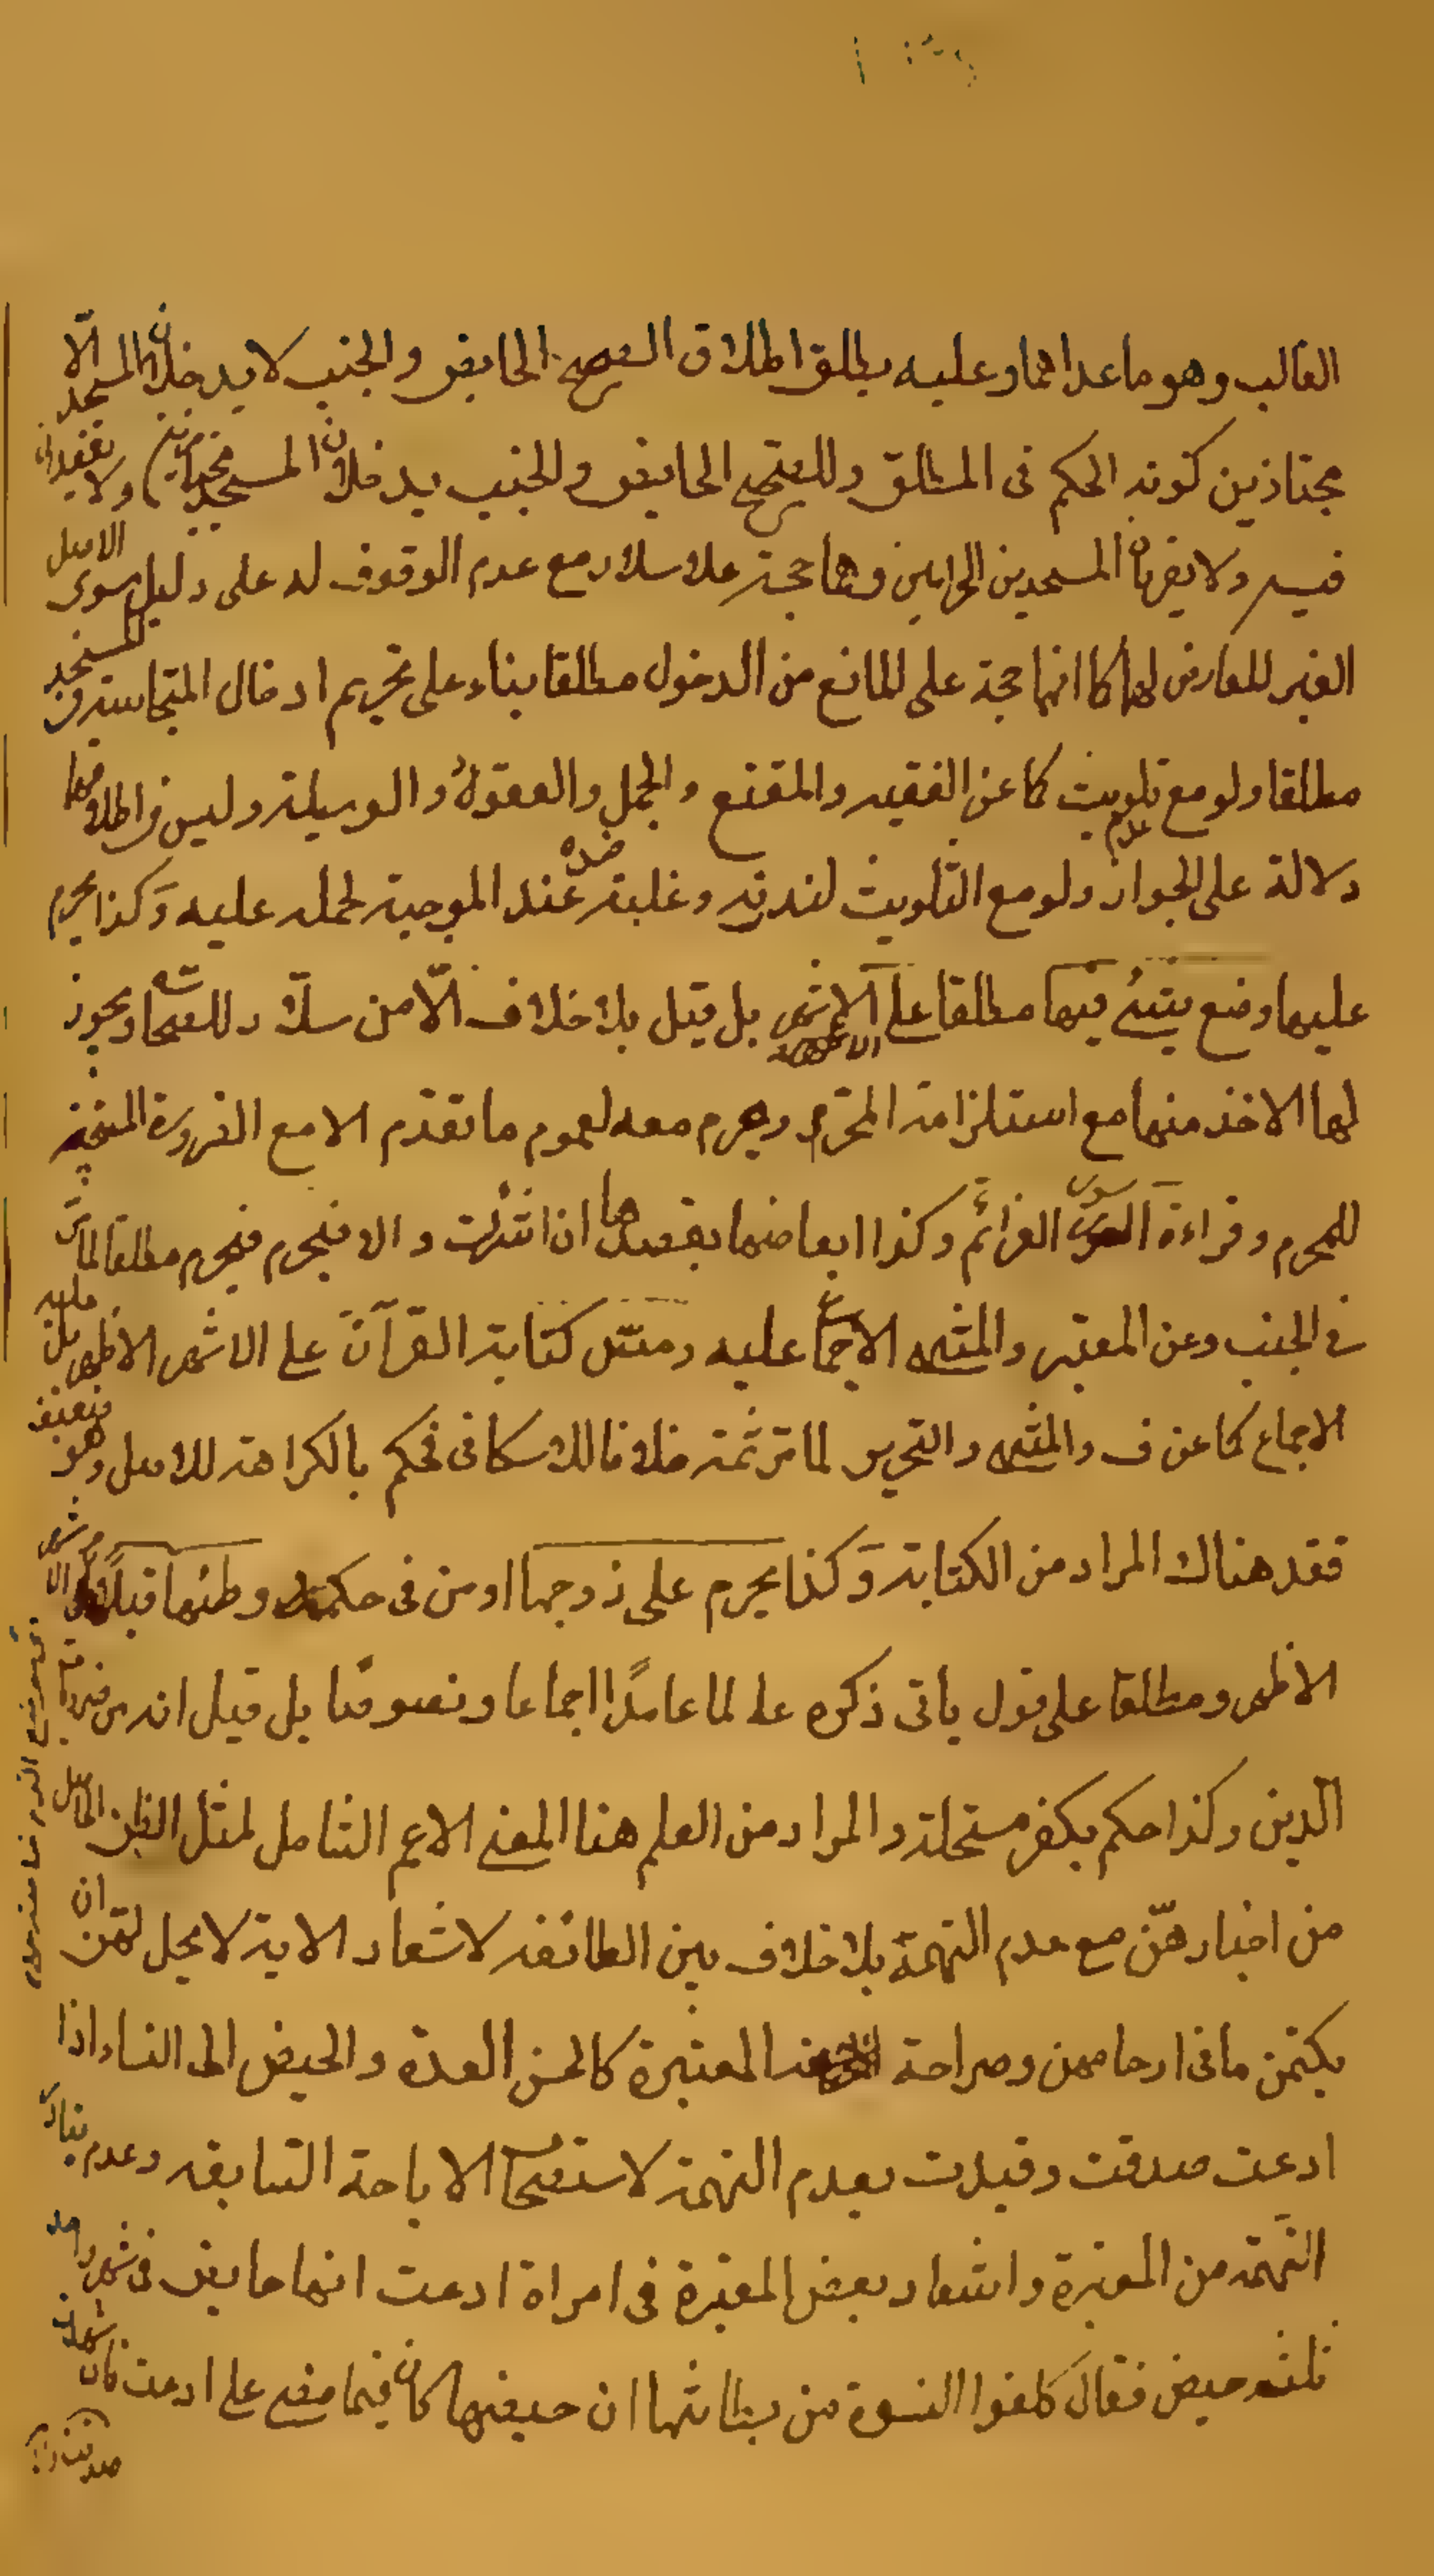 الغالب وهو ما عداهما وعليه يطلق اطلاق الصحيح الحايض والجنب لا يدخلان المسجد الّا
مجتازين كونه الحكم فى المطلق وللصحيح الحايض والجنب يدخلان المسجد مجتازين ولا يقعدان
فيه ولا يقربان المسجدين الحرامين وهما حجة على سلار مع عدم الوقوف له على دليل سوى الاصل
الغير المعارض لهما كما انهما حجة على المانع من الدخول مطلقا بناء على تحريم ادخال النجاسة فى المسجد
مطلقا ولو مع عدم تلويث كما عن الفقيه والمقنع والجمل والعقود والوسيلة وليس فى اطلاقهما
دلالة على الجواز ولو مع التلويث لندرته وغلبة ضده عنده الموجبة لحمله عليه وكذا يحرم
عليهما وضع شئ فيها مطلقا على الاشهر بل قيل بلا خلاف الّا من سلّار للصحاح ويجوز
لهما الاخذ منها مع استلزامه المحرم ويحرم معه لعموم ما تقدم الا مع الضرورة المبيحة
للمحرم وقراءة سور العزائم وكذا ابعاضها بقصدها ان اشتركت والا فيحرم مطلقا لما مرّ
فى الجنب وعن المعتبر والمنتهى الاجماع عليه ومسّ كتابة القرآن على الاشهر الاظهر بل عليه
الاجماع كما عن ف والمنتهى والتحرير لما مرّ ثمة خلافا للاسكافى فحكم بالكراهة للاصل وهو ضعيف
فقد هناك المراد من الكتابة وكذا يحرم على زوجها او من فى حكمه وطئها قبلًا
الاظهر ومطلقا على قول ياتى ذكره عالما عامدًا اجماعا ونصوصًا بل قيل انه من ضروريات
الدين وكذا حكم بكفر مستحله والمراد من العلم هنا المعنى الاعم الشامل لمثل الظن الحاصل
من اخبارهنّ مع عدم التهمة بلا خلاف بين الطائفه لاشعار الاية لا يحل لهن ان
يكتمن ما فى ارحامهن وصراحة المعتبرة كالحسن العدة والحيض الى النساء اذا
ادعت صدقت وقيدت بعدم التهمة لاستصحاب الاباحة السابقه وعدم تبادر
التهمة من المعتبرة واشعار بعض المعتبرة فى امراة ادعت انها حايض فى شهر واحد
ثلثه حيض فقال كلفوا النسوة من بطانتها ان حيضها كان فيما مضى على ادعت فان شهدن
صدقت